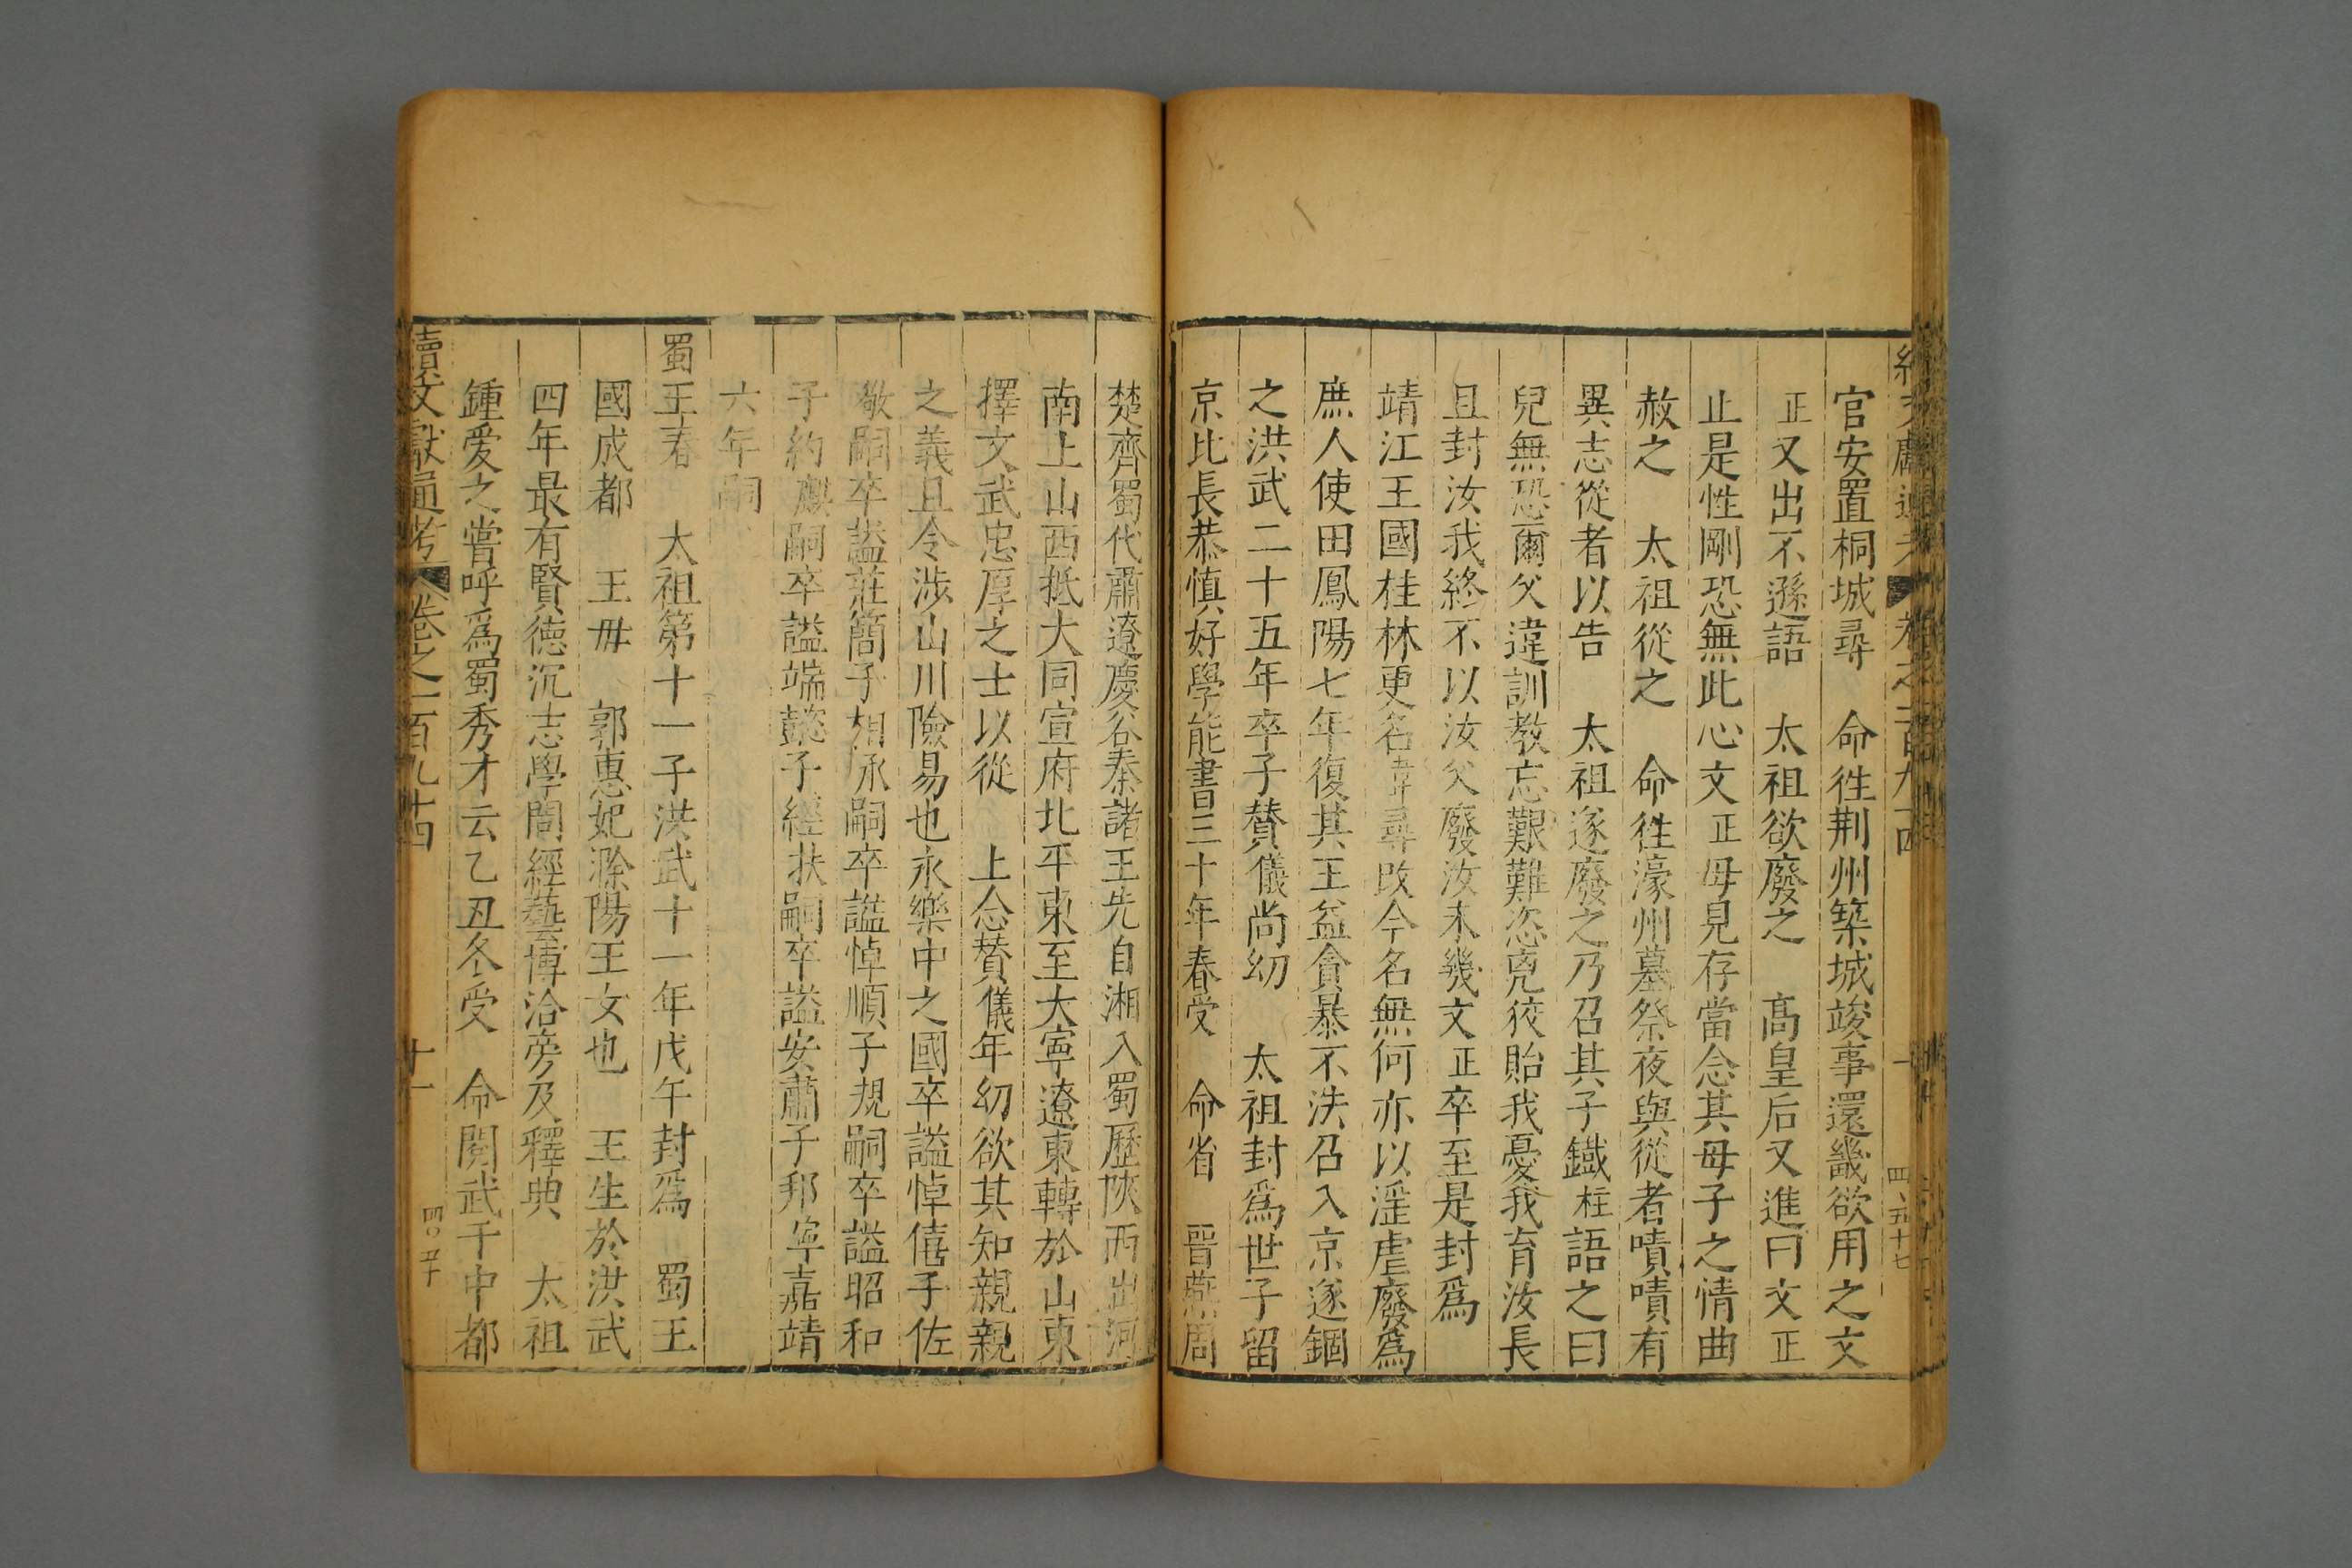 官安置桐城尋 命徃荆州築城竣事還畿欲用之文
正又出不遜語 太祖欲廢之 髙皇后又進曰文正
止是性剛恐無此心文正母見存當念其母子之情曲
赦之 太祖從之 命徃濠州墓祭夜與從者嘖嘖有
異志從者以告 太祖遂廢之乃召其子鐵柱語之曰
兒無恐爾父違訓教忘艱難恣兇狡貽我憂我育汝長
且封汝我終不以汝父廢汝未幾文正卒至是封爲
靖江王國桂林更名尋改今名無何亦以淫虐廢爲
庶人使田鳳陽七年復其王益貪暴不法召入京遂錮
之洪武二十五年卒子賛儀尚㓜 太祖封爲世子留
京比長恭慎好學能書三十年春受 命省 晉燕周
楚齊蜀代肅遼慶谷秦諸王先自湘入蜀歷陝西出河
南上山西抵大同宣府北平東至大寧遼東轉於山東
擇文武忠厚之士以從 上念賛儀年㓜欲其知親親
之義且令涉山川險易也永樂中之國卒謚悼僖子佐
敬嗣卒謚莊簡子相承嗣卒謚悼順子規嗣卒謚昭和
子約麒嗣卒謚端懿子經扶嗣卒謚安肅子邦寧嘉靖
六年嗣
蜀王椿 太祖第十一子洪武十一年戊午封爲 蜀王
國成都 王毋 郭惠妃滁陽王女也 王生於洪武
四年最有賢德沉志學問經藝博洽旁及釋典 太祖
鍾愛之嘗呼爲蜀秀才云乙丑冬受 命閱武于中都
續文獻通考 卷之一百九十四 十一